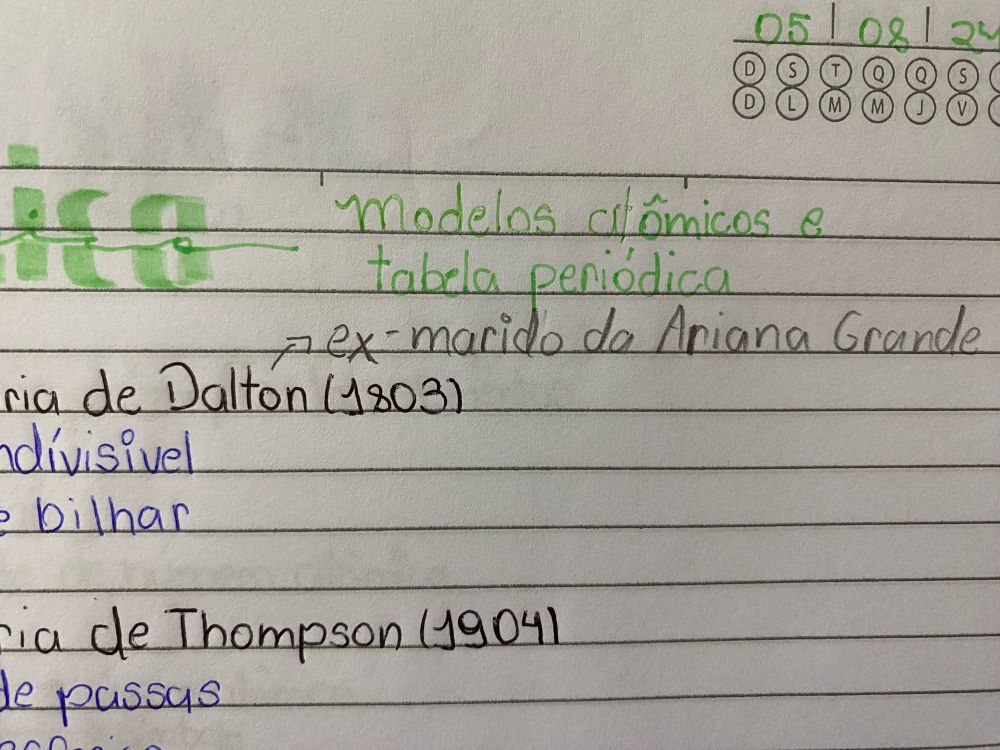 05 | 08 | 24
D S T Q Q S
D L M M J V
ica
modelos atômicos e
tabela periódica
→ ex-marido da Ariana Grande
ria de Dalton (1803)
ndívisível
e bilhar
ria de Thompson (1904)
de passas